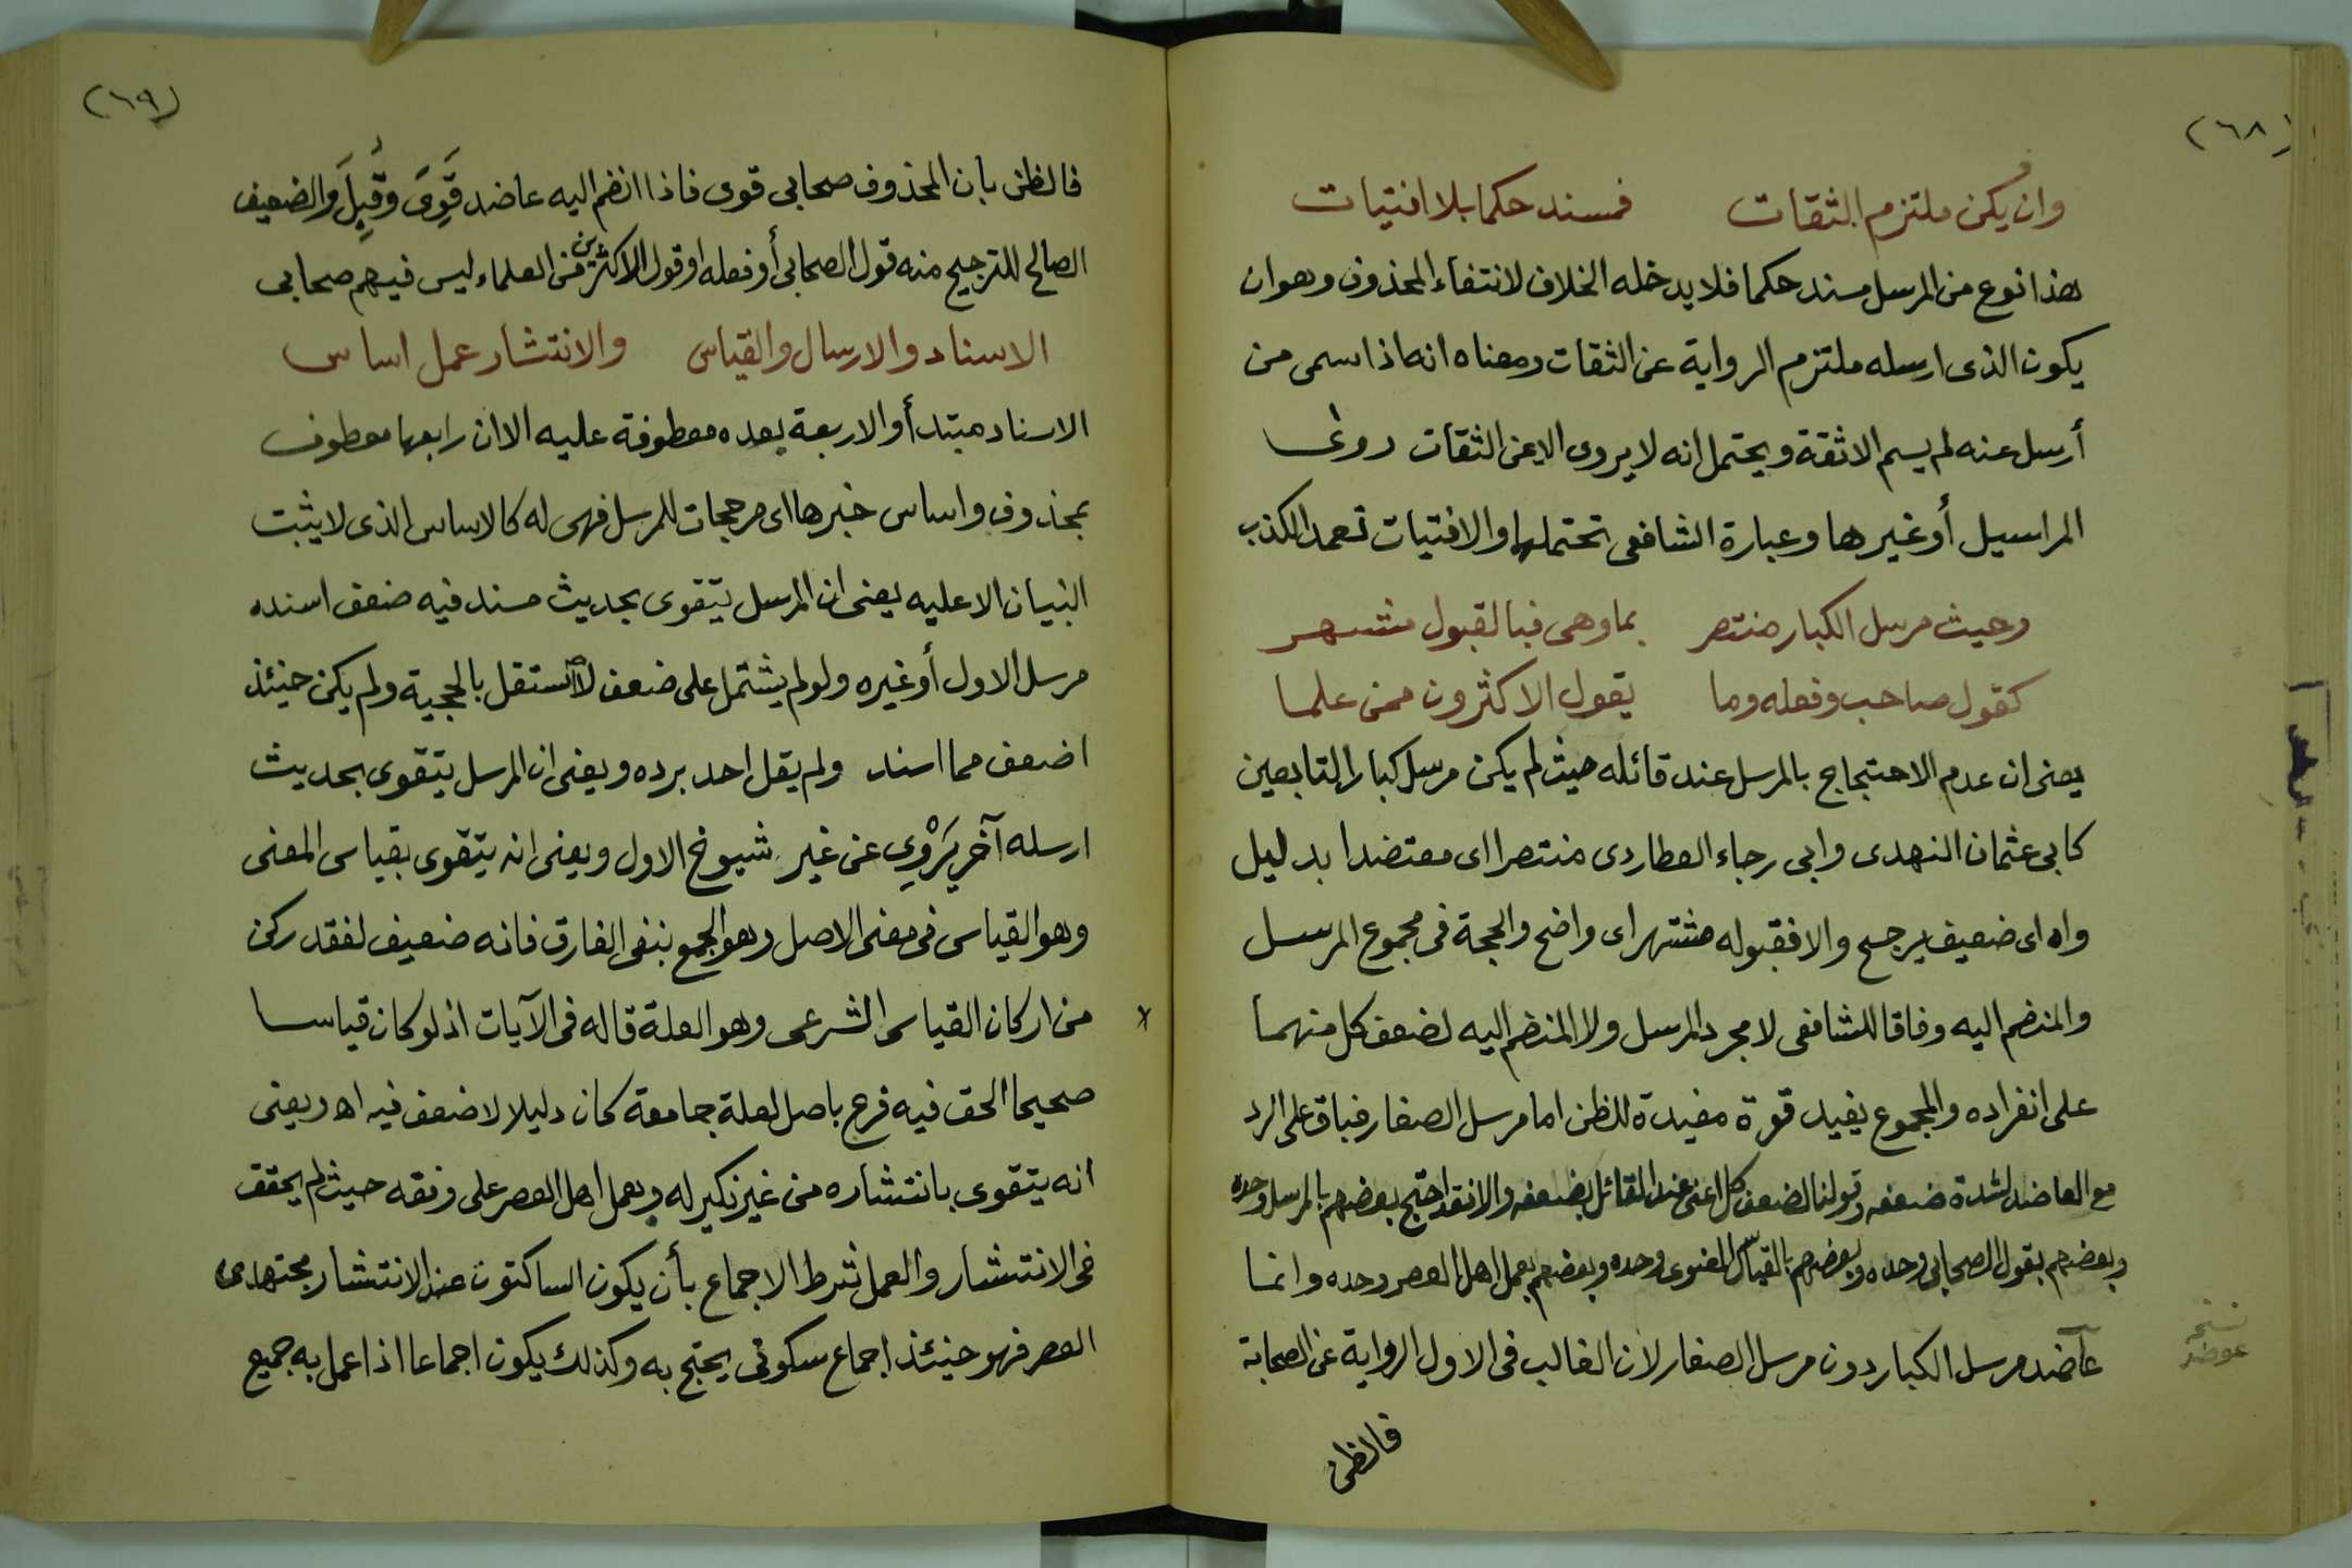 (٦٨)
وان يكن ملتزم الثقات فمسند حكما بلا افتيات
هذا نوع من المرسل مسند حكما فلا يدخله الخلاف لانتفاء المحذوف وهو ان
يكون الذى ارسله ملتزم الرواية عن الثقات ومعناه انه اذا سمى من
أرسل عنه لم يسم الا ثقة ويحتمل انه لا يروى الا عن الثقات روى
المراسيل أو غيرها وعبارة الشافعى تحتملها والافتيات تعمد الكذب
وحيث مرسل الكبار منتصر بما وهى فبالقبول مشتهر
كقول صاحب وفعله وما يقول الاكثرون ممن علما
يعنى ان عدم الاحتجاج بالمرسل عند قائله حيث لم يكن مرسل كبار التابعين
كابى عثمان النهدى وابى رجاء العطاردى منتصرا اى معتضدا بدليل
واه اى ضعيف يرجح والا فقبوله مشتهر اى واضح والحجة فى مجموع المرسل
والمنضم اليه وفاقا للشافعى لا مجرد المرسل ولا المنضم اليه لضعف كل منهما
على انفراده والمجموع يفيد قوة مفيدة للظن اما مرسل الصغار فباق على الرد
مع العاضد لشدة ضعفه وقولنا لضعف كل اعنى عند القائل بضعفه والا فقد احتج بعضهم بالمرسل وحده
وبعضهم بقول الصحابى وحده وبعضهم بالقياس المعنوى وحده وبعضهم بعمل اهل العصر وحده وانما
عاضد مرسل الكبار دون مرسل الصغار لان الغالب فى الاول الرواية عن الصحابة
نسخة
عوضد
فالظن
(٦٩)
فالظن بان المحذوف صحابى قوى فاذا انضم اليه عاضد قَوِىَ وقُبِلَ والضعيف
الصالح للترجيح منه قول الصحابى أو فعله او قول الاكثرين من العلماء ليس فيهم صحابى
الاسناد والارسال والقياس والانتشار عمل اساس
الاسناد مبتدأ والاربعة بعده معطوفة عليه الا ان رابعها معطوف
بمحذوف واساس خبرها اى مرجحات للمرسل فهى له كالاساس الذى لا يثبت
البنيان الا عليه يعنى ان المرسل يتقوى بحديث مسند فيه ضعف اسنده
مرسل الاول أو غيره ولو لم يشتمل على ضعف لاستقل بالحجية ولم يكن حنئذ
اضعف مما اسند ولم يقل احد برده ويعنى ان المرسل يتقوى بحديث
ارسله آخر يَرْوِي عن غير شيوخ الاول ويعنى انه يتقوى بقياس المعنى
وهو القياس فى معنى الاصل وهو الجمع بنفى الفارق فانه ضعيف لفقد ركن
من اركان القياس الشرعى وهو العلة قاله فى الآيات اذ لو كان قياسا
صحيحا الحق فيه فرع باصل لعلة جامعة كان دليلا لا ضعف فيه اه ويعنى
انه يتقوى بانتشاره من غير نكير له وبعمل اهل العصر على وفقه حيث لم يحقق
فى الانتشار والعمل شرط الاجماع بأن يكون الساكتون عند الانتشار مجتهدى
العصر فهو حنيئذ اجماع سكوتى يحتج به وكذلك يكون اجماعا اذا عمل به جميع